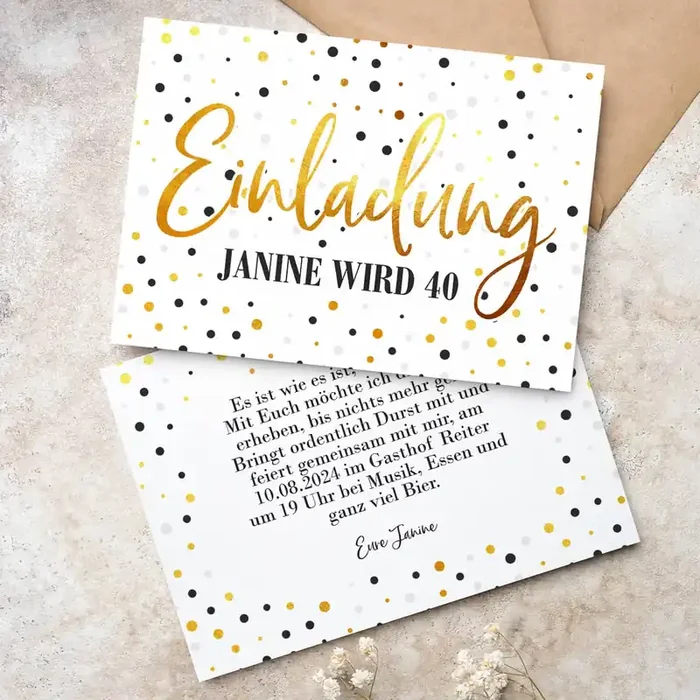 Einladung
JANINE WIRD 40
Es ist wie es ist,
Mit Euch möchte ich
erheben, bis nichts mehr
Bringt ordentlich Durst mit und
feiert gemeinsam mit mir, am
10.08.2024 im Gasthof Reiter
um 19 Uhr bei Musik, Essen und
ganz viel Bier.
Eure Janine